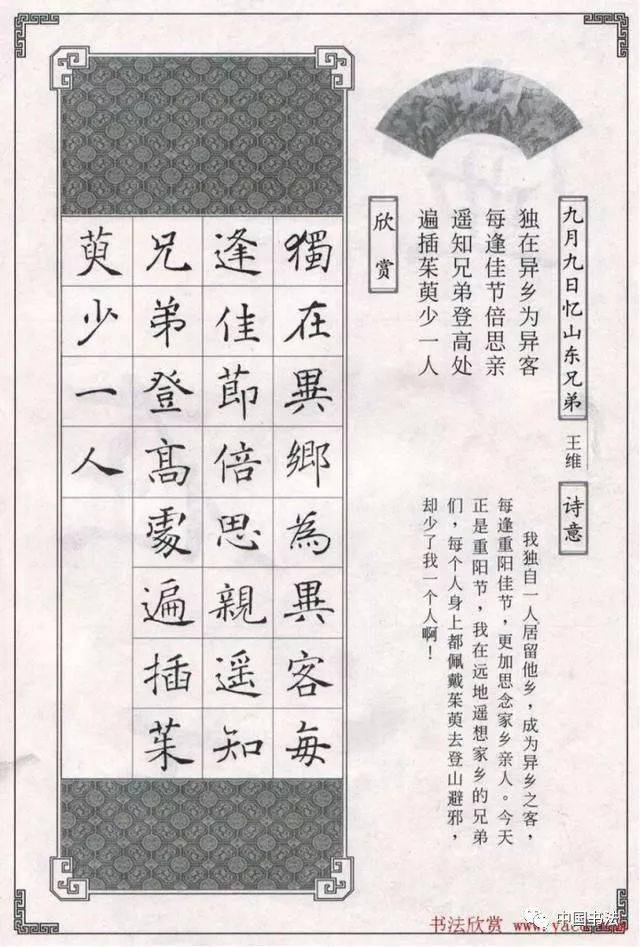 九月九日忆山东兄弟
王维
独在异乡为异客
每逢佳节倍思亲
遥知兄弟登高处
遍插茱萸少一人
诗意
我独自一人居留他乡，成为异乡之客，
每逢重阳佳节，更加思念家乡亲人。今天
正是重阳节，我在远地遥想家乡的兄弟
们，每个人身上都佩戴茱萸去登山避邪，
却少了我一个人啊！
欣赏
獨在異鄉為異客每
逢佳節倍思親遥知
兄弟登高處遍插茱
萸少一人
书法欣赏
中国书法